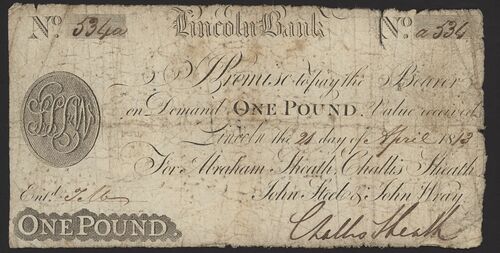 No. 534a Lincoln Bank No. a 534
I Promise to pay the Bearer
on Demand ONE POUND. Value received
Lincoln the 21 day of April 1813
For Abraham Sheath, Challis Sheath
John Steel & John Wray
Entd.
Challis Sheath
ONE POUND.